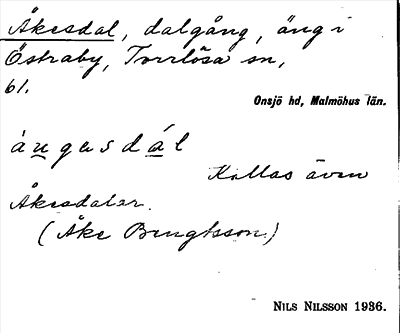 Åkesdal, dalgång, äng i
Östraby, Torrlösa sn,
61.
Onsjö hd, Malmöhus län.
àu̲gəsdá̲l
Kallas även
Åkesdalar.
(Åke Bengtsson)
NILS NILSSON 1936.